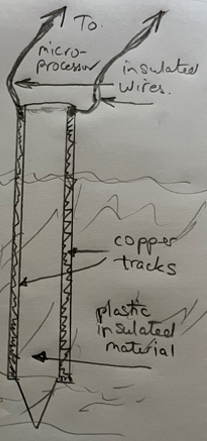 To
micro-
processor
insulated
wires.
copper
tracks
plastic
insulated
material